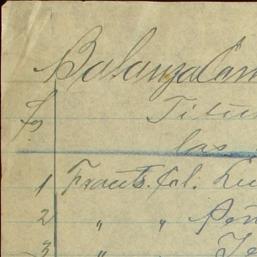 Balanza Com
fo
Titu
las
1 Frants. Col. Lu
2 " " Pen
3 " Te